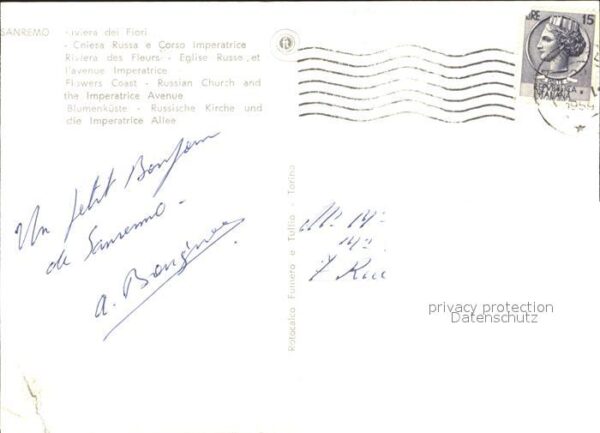 SANREMO - Riviera dei Fiori
- Chiesa Russa e Corso Imperatrice
Riviera des Fleurs - Eglise Russe et
l'avenue Imperatrice
Flowers Coast - Russian Church and
the Imperatrice Avenue
Blumenküste - Russische Kirche und
die Imperatrice Allee
LIRE 15
ITALIANA
1959
Un petit Bonjour
de Sanremo -
a.
Rotocalco Fumero e Tullio - Torino
7 Rue
privacy protection
Datenschutz